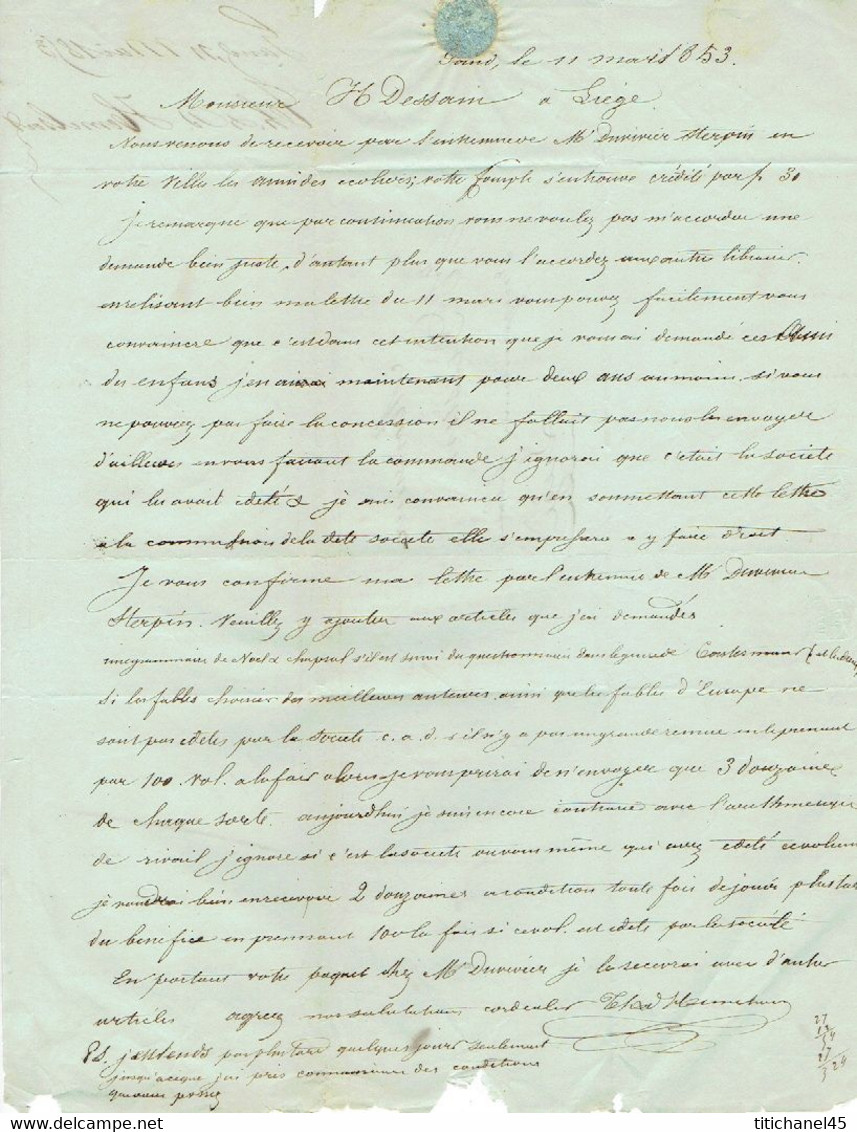 Gand, le 11 mars 1853.
Monsieur H Dessain a Liège.
Nous venons de recevoir par l'entremise Mr Duvivier Sterpin en
votre ville les amis des écoliers, votre compte s'en trouve crédité par f 30
Je remarque que par continuation vous ne voulez pas m'accorder une
demande bien juste, d'autant plus que vous l'accordez aux autre libraires.
en relisant bien ma lettre du 11 mars vous pouvez facilement vous
convaincre que c'est dans cet intention que je vous ai demandé ces Ami
des enfans, j'en aurai maintenant pour deux ans au moins. si vous
ne pouvez pas faire la concession il ne fallait pas nous les envoyer
d'ailleurs en vous faisant la commande j'ignorai que c'était la societe
qui les avait edités & je suis convaincu qu'en soumettant cette lettre
a la commission de la dite societe elle s'empressera a y faire droit.
Je vous confirme ma lettre par l'entremise de Mr Duvivier
Sterpin. Veuillez y ajouter aux articles que j'ai demandés
une grammaire de Noel & Chapsal s'il est suivi du questionnaire dans le genre de
si les fables choisies des meilleurs auteurs ainsi que les fables d'Europe ne
sont pas edites par la Societe c. a. d. s'il n'y a pas un grande remise en le prenant
par 100. Vol. a la fois alors je vous prirai de n'envoyer que 3 douzaines
de chaque sorte. aujourd'hui je suis encore contrarie avec l'arithmetique
de rivail j'ignore si c'est la societe ou vous même qui avez edité ce volume
je voudrai bien en recevoir 2 douzaines a condition toute fois de jouir plus tard
du benéfice en prennant 100 a la fois si ce vol. est edité par la société
En portant votre paquet chez Mr Duvivier je le recevrai avec d'autre
articles agreez nos salutations cordiales
Ps. j'attends pas plus tard quelques jours seulement
jusqu'a ce que j'ai pris connaissance des conditions
que vous posez
titichanel45